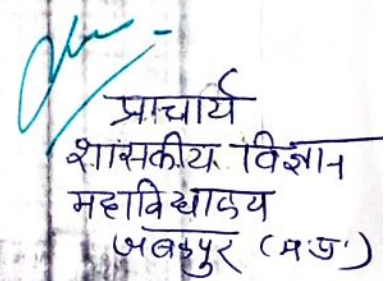 प्राचार्य
शासकीय विज्ञान
महाविद्यालय
जबलपुर (म.प्र.)